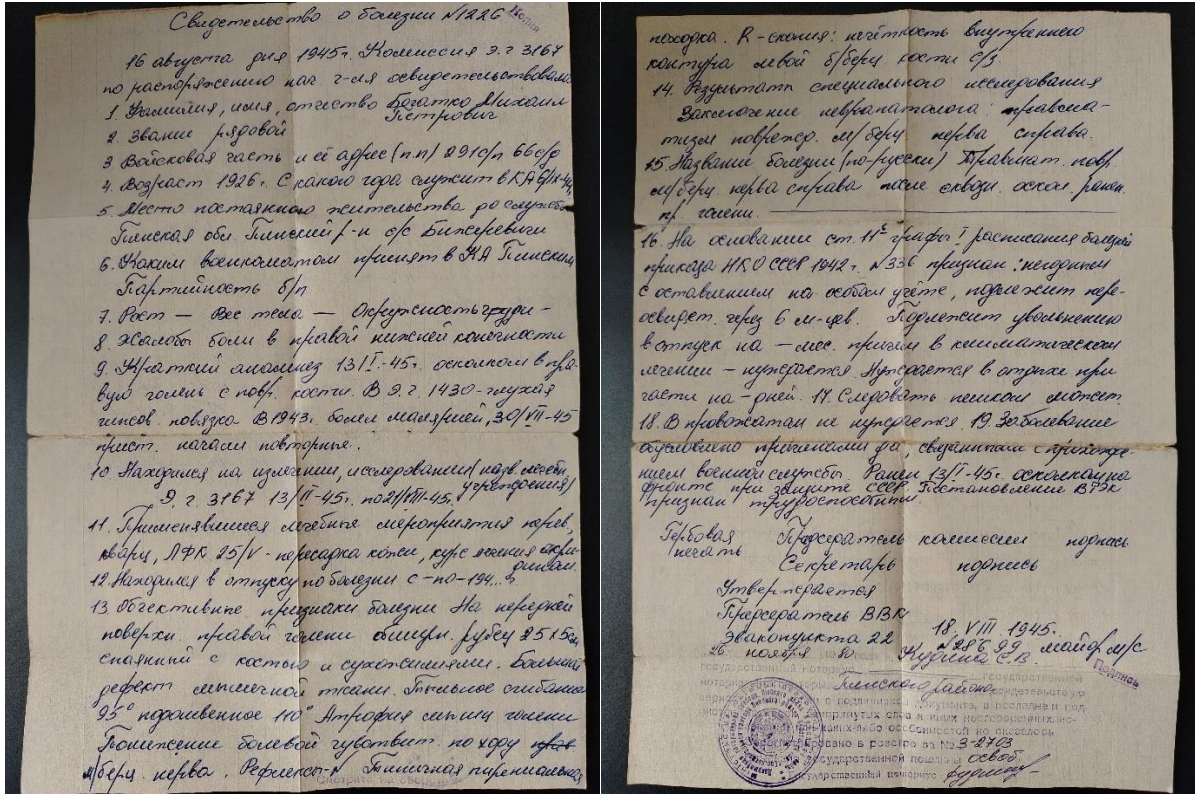 Свидетельство о болезни №1226
Копия
16 августа дня 1945г. Комиссия э.г 3167
по распоряжению нач г-ля освидетельствовала
1. Фамилия, имя, отчество Богатко Михаил
Петрович
2. Звание рядовой
3. Войсковая часть и её адрес (п.п) 291 с/п 66 с/д
4. Возраст 1926г. С какого года служит в КА 6/IX-44
5. Место постоянного жительства до службы
Пинская обл. Пинский р-н с/с Бижеревичи
6. Каким военкоматом принят в КА Пинским
Партийность б/п
7. Рост — Вес тела — Окружность груди -
8. Жалобы боли в правой нижней конечности
9. Краткий анамнез 13/I-45г. осколком в пра-
вую голень с повр. кости. В э.г. 1430-глухая
гипсов. повязка В 1943г. болел малярией, 30/VII-45
прист. начали повторные.
10. Находился на излечении, исследовании (назв. лечебн.
учреждения)
Э.г. 3167 13/II-45г. по 21/VIII-45г.
11. Применявшиеся лечебные мероприятия перев,
кварц, ЛФК 25/V - пересадка кожи, курс лечения акри-
хином.
12. Находился в отпуску по болезни с - по - 194...г
13. Объективные признаки болезни На передней
поверхн. правой голени обширн. рубец 25х5см
спаянный с костью и сухожилиями. Большой
дефект мышечной ткани. Тыльное сгибание
95° подошвенное 110° Атрофия мышц голени
Понижение болевой чувствит. по ходу прав
м/берц. нерва. Рефлексы-N Типичная пиренеальная
Смотрите на обороте
походка. R-скопия: нечёткость внутреннего
контура левой б/берц кости с/з.
14. Результаты специального исследования
Заключение невропатолога: травма-
тизм поврежд. м/берц нерва справа.
15. Название болезни (по-русски) Травмат. повр.
м/берц. нерва справа после сквозн. оскол. ранен.
пр. голени.
16. На основании ст. 11 графы I расписания болезней
приказа НКО СССР 1942г. №336 признан: негодным
с оставлением на особом учёте, подлежит пере-
освидет. через 6 м-цев. Подлежит увольнению
в отпуск на — мес. причем в климатическом
лечении — нуждается. Нуждается в отдыхе при
части на - дней. 17. Следовать пешком может
18. В провожатом не нуждается. 19. Заболевание
обусловлено причинами да связанными с прохожде-
нием военной службы. Ранен 13/I-45г. осколком на
фронте при защите СССР Постановление ВТЭК
признан трудоспособным.
Гербовая Председатель комиссии подпись
печать
Секретарь подпись
Утверждается
Председатель ВВК
Эвакопункта 22 18. VIII 1945.
№28699 майор м/с
26 ноября 80 Кудина С.В.
Подпись
государственный нотариус государственной
Пинского района
нотариальной конторы, свидетельствую
верность этой копии с подлинником документа, в последнем под-
чисток, приписок, зачеркнутых слов и иных неоговоренных ис-
правлений или каких-либо особенностей не оказалось
Зарегистрировано в реестре за № 3-2703
государственной пошлины освоб.
Государственный нотариус